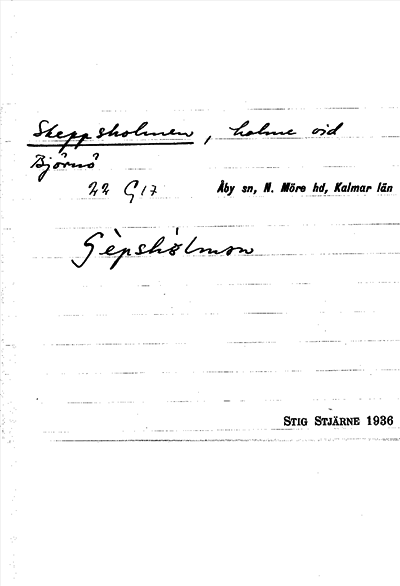 Skeppsholmen, holme vid
Björnö
22 G17 Åby sn, N. Möre hd, Kalmar län
STIG STJÄRNE 1936